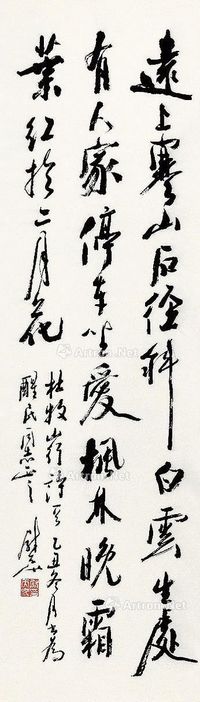 遠上寒山石径斜白雲生處
有人家停车坐愛楓林晚霜
葉红於二月花
杜牧 詩 乙丑冬月书为
醒民同志正之
Artron.Net